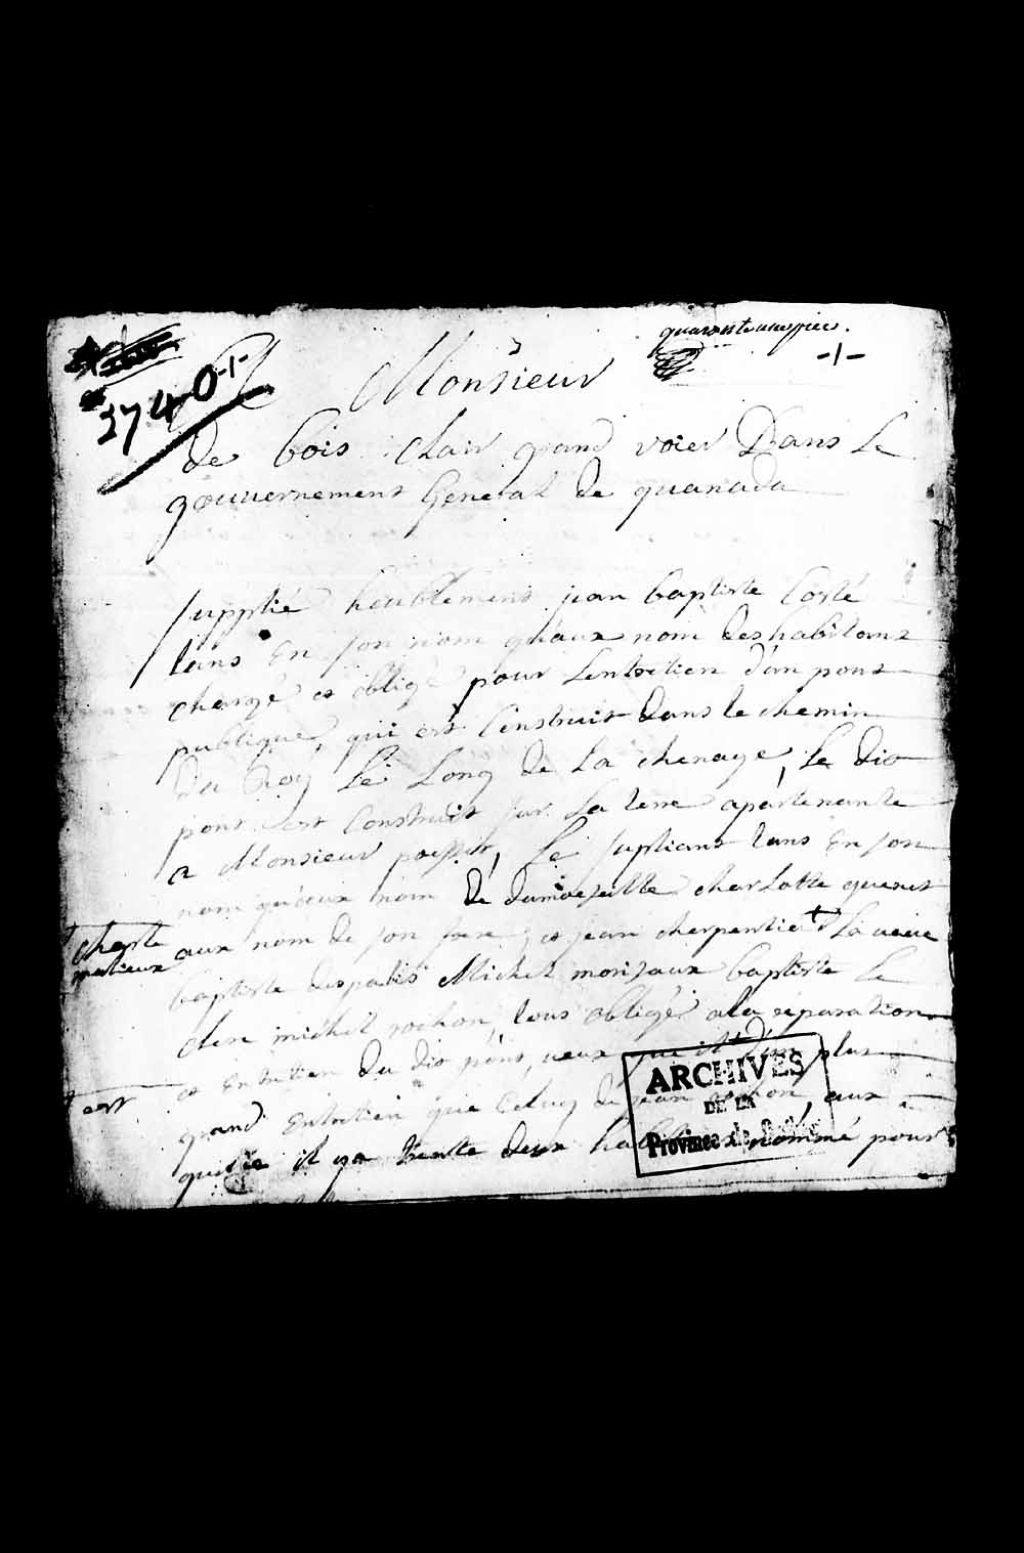 quarante unnpiece.
-1-
3740-1-
A Monsieur
de bois clair grand voier Dans Le
gouuernement General de quanada
supplié heublement jean baptiste Corté
tans En son nom qu'aux nom des habitans
chargé et obligé pour Lentretien d'un pont
publique, qui est Construit dans le chemin
Du Roy Le Long de La chenaye, Le dit
pont est Construit sur La terre apartenante
a Monsieur , Le supliant tans En son
nom qu'aux nom de damoiselle charLotte
aux nom de son frere, et jean charpentier + La veuve
charle
matieux
baptiste despatis Michel morisaux baptiste Le
clere michel rochon, tous obligé a la reparation
et Entretien du dit pons, veux que il + d'un plus
+ est
grand Entretien que Celuy de jean rochon, aux
quelle il ya trente deux habitans nommé pour
ARCHIVES
DE LA
Province de Québec